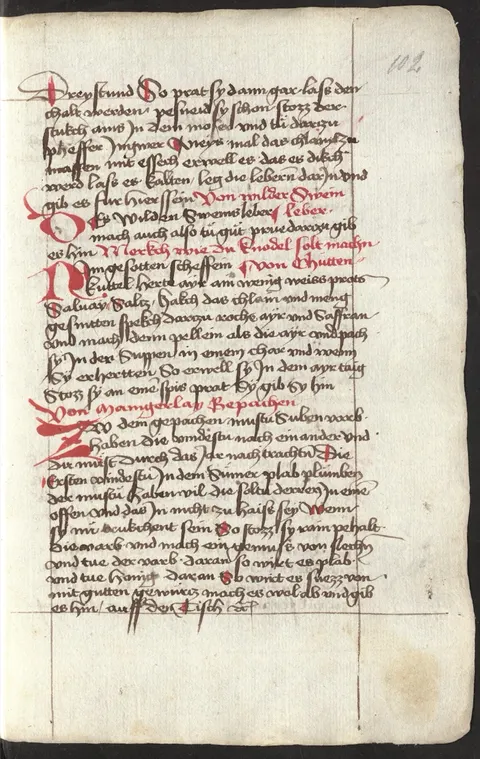 102
Dreystund So prat sy dann gar lass den
chalt werden pesneid sy schon stozz der
stukch ains In dem morser und tü darczu
pheffer Ingwer Muers mal das chlain zu
massen mit essech erwell es das es dikch
werd lass es kalten leg die lebern darin und
gib es fur hiersein Von wilder Swein
Des wilden Sweins leber leber
mach auch also tu gut prüe darczu gib
es hin Merkch wie du knodel solt machn
Nim gesotten scheffein Von Chutten
kuttel herte ayr ain wenig weiss prots
Saluay Saltz hakch das chlain und meng
gesnitten spekch darczu rochs ayr und Saffran
und mach denn pellein als die ayr und pach
sy In der Suppen in einem char und wenn
Sy erhertten So erwell sy In dem ayr taig
Stozz sy an eine spis prat Sy gib sy hin
Von Maingerlay Gepachen
Zu dem gepachen mustu Suben varb
haben die vindestu nach einander und
dir must durch das Jar nach trachtn Die
Ersten vindestu In dem Sumer plab plümben
der mustu haben vil die soltu derren In eine
offen und das In nicht zu haiss sey Wenn
sy nu trukchent sein So stozz sy rain pehalt
die varb und mach ein gemuss von flechn
und tue der varb daran so wirt es plab
und tue honig daran So wirt es suezz von
mit gutten gewürcz mach es wol ab und gib
es hin auff den Tisch etc